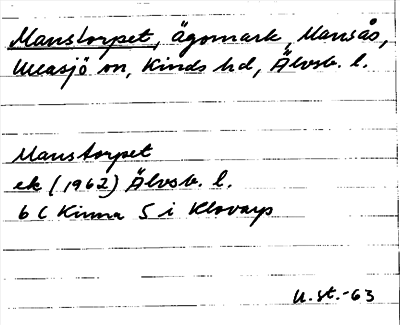 Manstorpet, ägomark, Mansås,
Ulleasjö sn, Kinds hd, Älvsb. l.
Manstorpet
ek (1962) Älvsb. l.
6 C Kinna S i Klovarp
U.st.-63